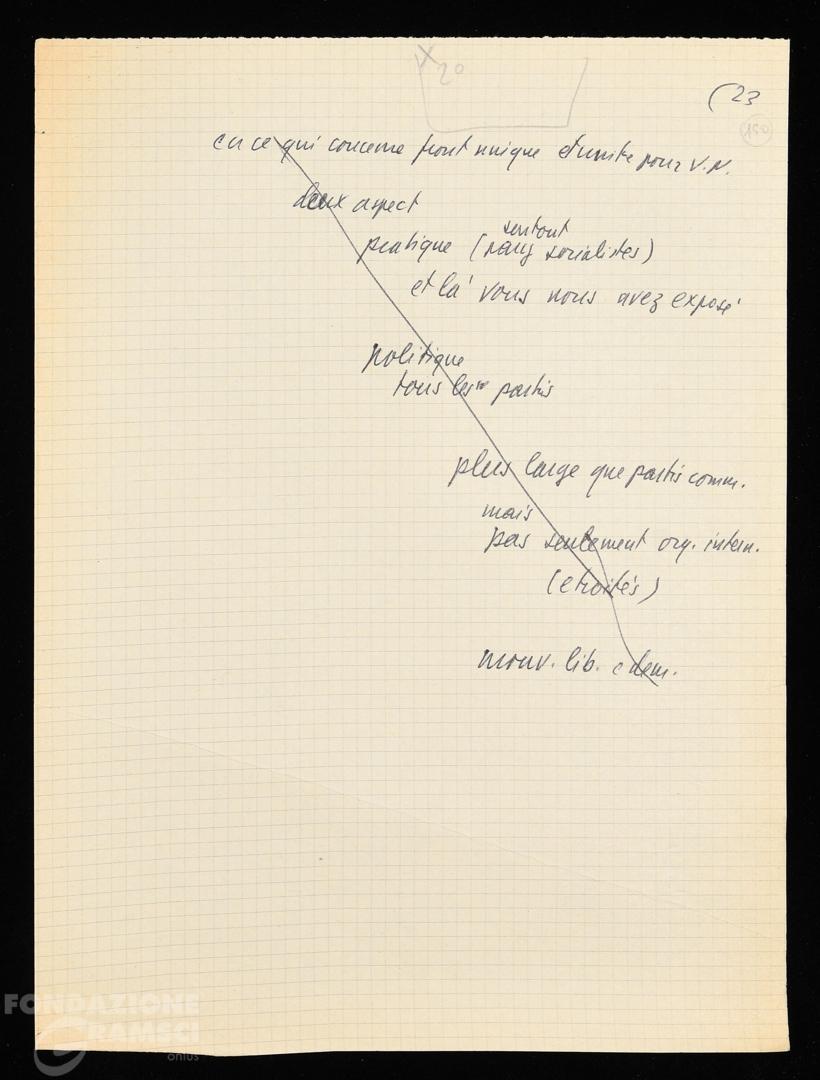 X 20
(23
150
en ce qui concerne front unique d'unité pour V.N.
deux aspect
surtout
pratique (pays socialistes)
et là vous nous avez exposé
politique
tous les partis
plus large que partis comm.
mais
pas seulement org. intern.
(etroités)
mouv. lib. e dem.
FONDAZIONE
GRAMSCI
onlus